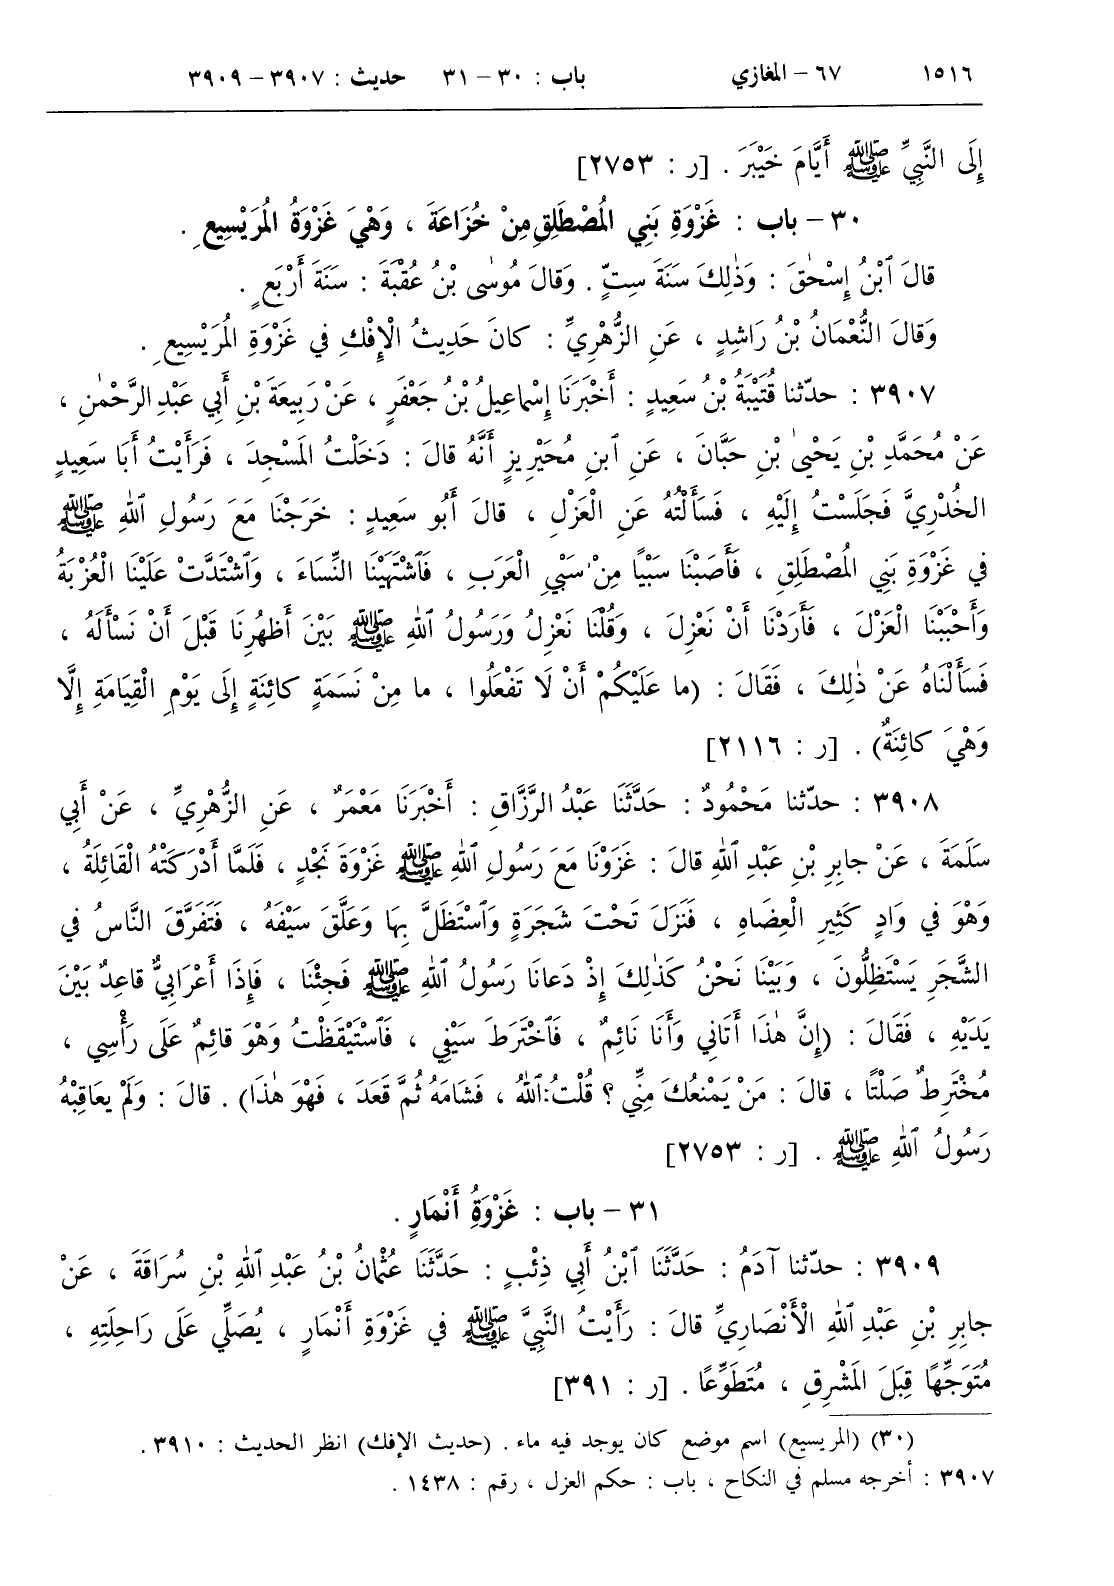 ١٥١٦ ٦٧ – المغازي باب : ٣٠ – ٣١ حديث : ٣٩٠٧ – ٣٩٠٩
إِلَى النَّبِيِّ ﷺ أَيَّامَ خَيْبَرَ . [ر : ٢٧٥٣]
٣٠ – باب : غَزْوَةِ بَنِي الْمُصْطَلِقِ مِنْ خُزَاعَةَ ، وَهْيَ غَزْوَةُ الْمُرَيْسِيعِ .
قالَ ٱبْنُ إِسْحٰقَ : وَذٰلِكَ سَنَةَ سِتٍّ . وَقالَ مُوسٰى بْنُ عُقْبَةَ : سَنَةَ أَرْبَعٍ .
وَقالَ النُّعْمَانُ بْنُ رَاشِدٍ ، عَنِ الزُّهْرِيِّ : كانَ حَدِيثُ الْإِفْكِ في غَزْوَةِ الْمُرَيْسِيعِ .
٣٩٠٧ : حدّثنا قُتَيْبَةُ بْنُ سَعِيدٍ : أَخْبَرَنَا إِسْماعِيلُ بْنُ جَعْفَرٍ ، عَنْ رَبِيعَةَ بْنِ أَبِي عَبْدِ الرَّحْمٰنِ ،
عَنْ مُحَمَّدِ بْنِ يَحْيىٰ بْنِ حَبَّانَ ، عَنِ ٱبنِ مُحَيْرِيزٍ أَنَّهُ قالَ : دَخَلْتُ الْمَسْجِدَ ، فَرَأَيْتُ أَبَا سَعِيدٍ
الخُدْرِيَّ فَجَلَسْتُ إِلَيْهِ ، فَسَأَلْتُهُ عَنِ الْعَزْلِ ، قالَ أَبُو سَعِيدٍ : خَرَجْنَا مَعَ رَسُولِ ٱللهِ ﷺ
في غَزْوَةِ بَنِي الْمُصْطَلِقِ ، فَأَصَبْنَا سَبْيًا مِنْ سَبْيِ الْعَرَبِ ، فَٱشْتَهَيْنَا النِّسَاءَ ، وَٱشْتَدَّتْ عَلَيْنَا الْعُزْبَةُ
وَأَحْبَبْنَا الْعَزْلَ ، فَأَرَدْنَا أَنْ نَعْزِلَ ، وَقُلْنَا نَعْزِلُ وَرَسُولُ ٱللهِ ﷺ بَيْنَ أَظهُرِنَا قَبْلَ أَنْ نَسْأَلَهُ ،
فَسَأَلْنَاهُ عَنْ ذٰلِكَ ، فَقَالَ : (ما عَلَيْكُمْ أَنْ لَا تَفْعَلُوا ، ما مِنْ نَسَمَةٍ كائِنَةٍ إِلَى يَوْمِ الْقِيَامَةِ إِلَّا
وَهْيَ كائِنَةٌ) . [ر : ٢١١٦]
٣٩٠٨ : حدّثنا مَحْمُودٌ : حَدَّثَنَا عَبْدُ الرَّزَّاقِ : أَخْبَرَنَا مَعْمَرٌ ، عَنِ الزُّهْرِيِّ ، عَنْ أَبِي
سَلَمَةَ ، عَنْ جابِرِ بْنِ عَبْدِ ٱللهِ قالَ : غَزَوْنَا مَعَ رَسُولِ ٱللهِ ﷺ غَزْوَةَ نَجْدٍ ، فَلَمَّا أَدْرَكَتْهُ الْقَائِلَةُ ،
وَهْوَ في وَادٍ كَثِيرِ الْعِضَاهِ ، فَنَزَلَ تَحْتَ شَجَرَةٍ وَٱسْتَظَلَّ بِهَا وَعَلَّقَ سَيْفَهُ ، فَتَفَرَّقَ النَّاسُ في
الشَّجَرِ يَسْتَظِلُّونَ ، وَبَيْنَا نَحْنُ كَذٰلِكَ إِذْ دَعانَا رَسُولُ ٱللهِ ﷺ فَجِئْنَا ، فَإِذَا أَعْرَابِيٌّ قاعِدٌ بَيْنَ
يَدَيْهِ ، فَقَالَ : (إِنَّ هٰذَا أَتَانِي وَأَنَا نَائِمٌ ، فَٱخْتَرَطَ سَيْفِي ، فَٱسْتَيْقَظْتُ وَهْوَ قائِمٌ عَلَى رَأْسِي ،
مُخْتَرِطٌ صَلْتًا ، قالَ : مَنْ يَمْنَعُكَ مِنِّي ؟ قُلْتُ:ٱللهُ ، فَشَامَهُ ثُمَّ قَعَدَ ، فَهْوَ هٰذَا) . قالَ : وَلَمْ يعَاقِبْهُ
رَسُولُ ٱللهِ ﷺ . [ر : ٢٧٥٣]
٣١ – باب : غَزْوَةُِ أَنْمَارٍ .
٣٩٠٩ : حدّثنا آدَمُ : حَدَّثَنَا ٱبْنُ أَبِي ذِئْبٍ : حَدَّثَنَا عُثْمانُ بْنُ عَبْدِ ٱللهِ بْنِ سُرَاقَةَ ، عَنْ
جابِرِ بْنِ عَبْدِ ٱللهِ الْأَنْصَارِيِّ قالَ : رَأَيْتُ النَّبِيَّ ﷺ في غَزْوَةِ أَنْمَارٍ ، يُصَلِّي عَلَى رَاحِلَتِهِ ،
مُتَوَجِّهًا قِبَلَ الْمَشْرِقِ ، مُتَطَوِّعًا . [ر : ٣٩١]
(٣٠) (المريسيع) اسم موضع كان يوجد فيه ماء . (حديث الإفك) انظر الحديث : ٣٩١٠ .
٣٩٠٧ : أخرجه مسلم في النكاح ، باب : حكم العزل ، رقم : ١٤٣٨ .